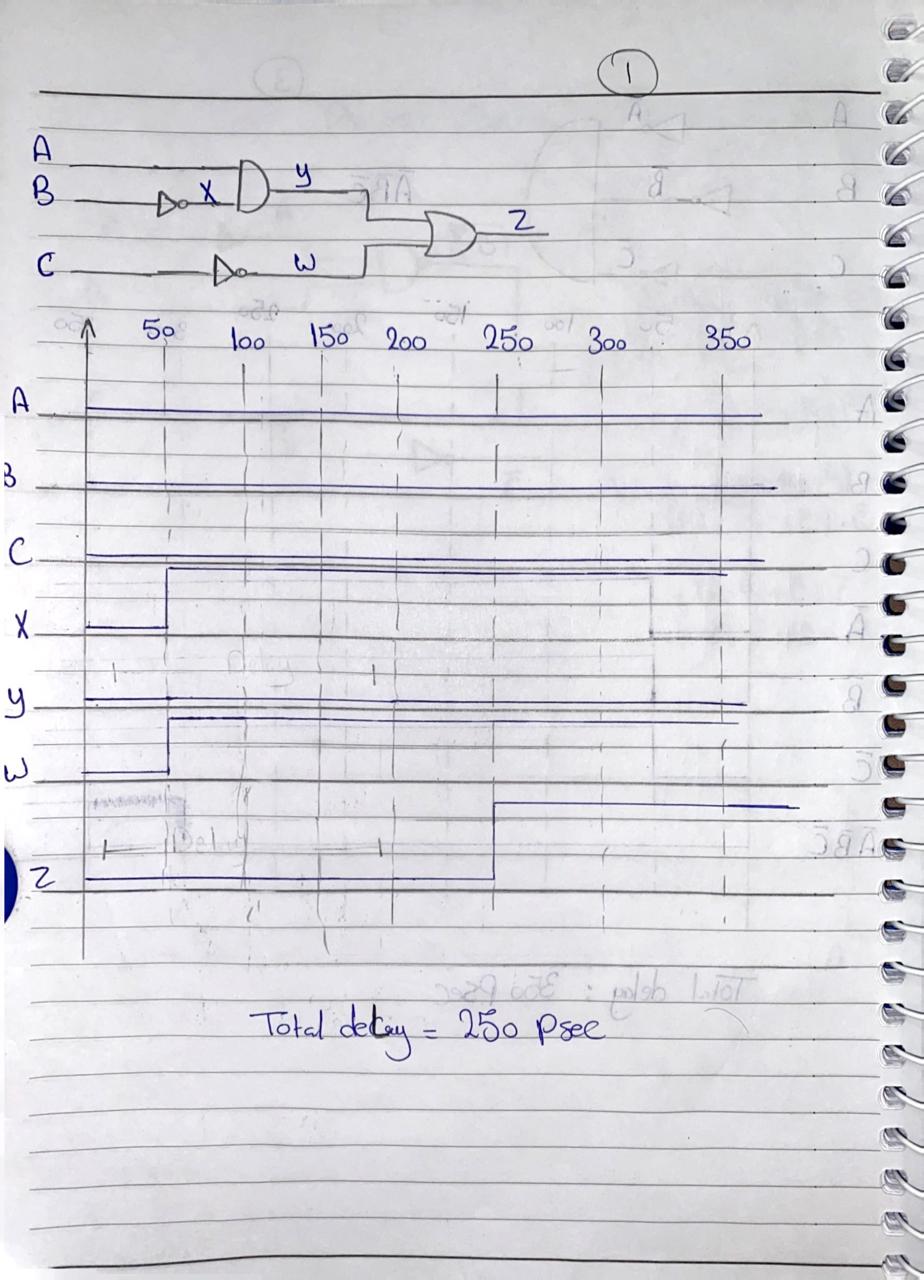 1
A
B X Y
Z
C W
50 100 150 200 250 300 350
A
B
C
X
Y
W
Z
Total delay = 250 Psec